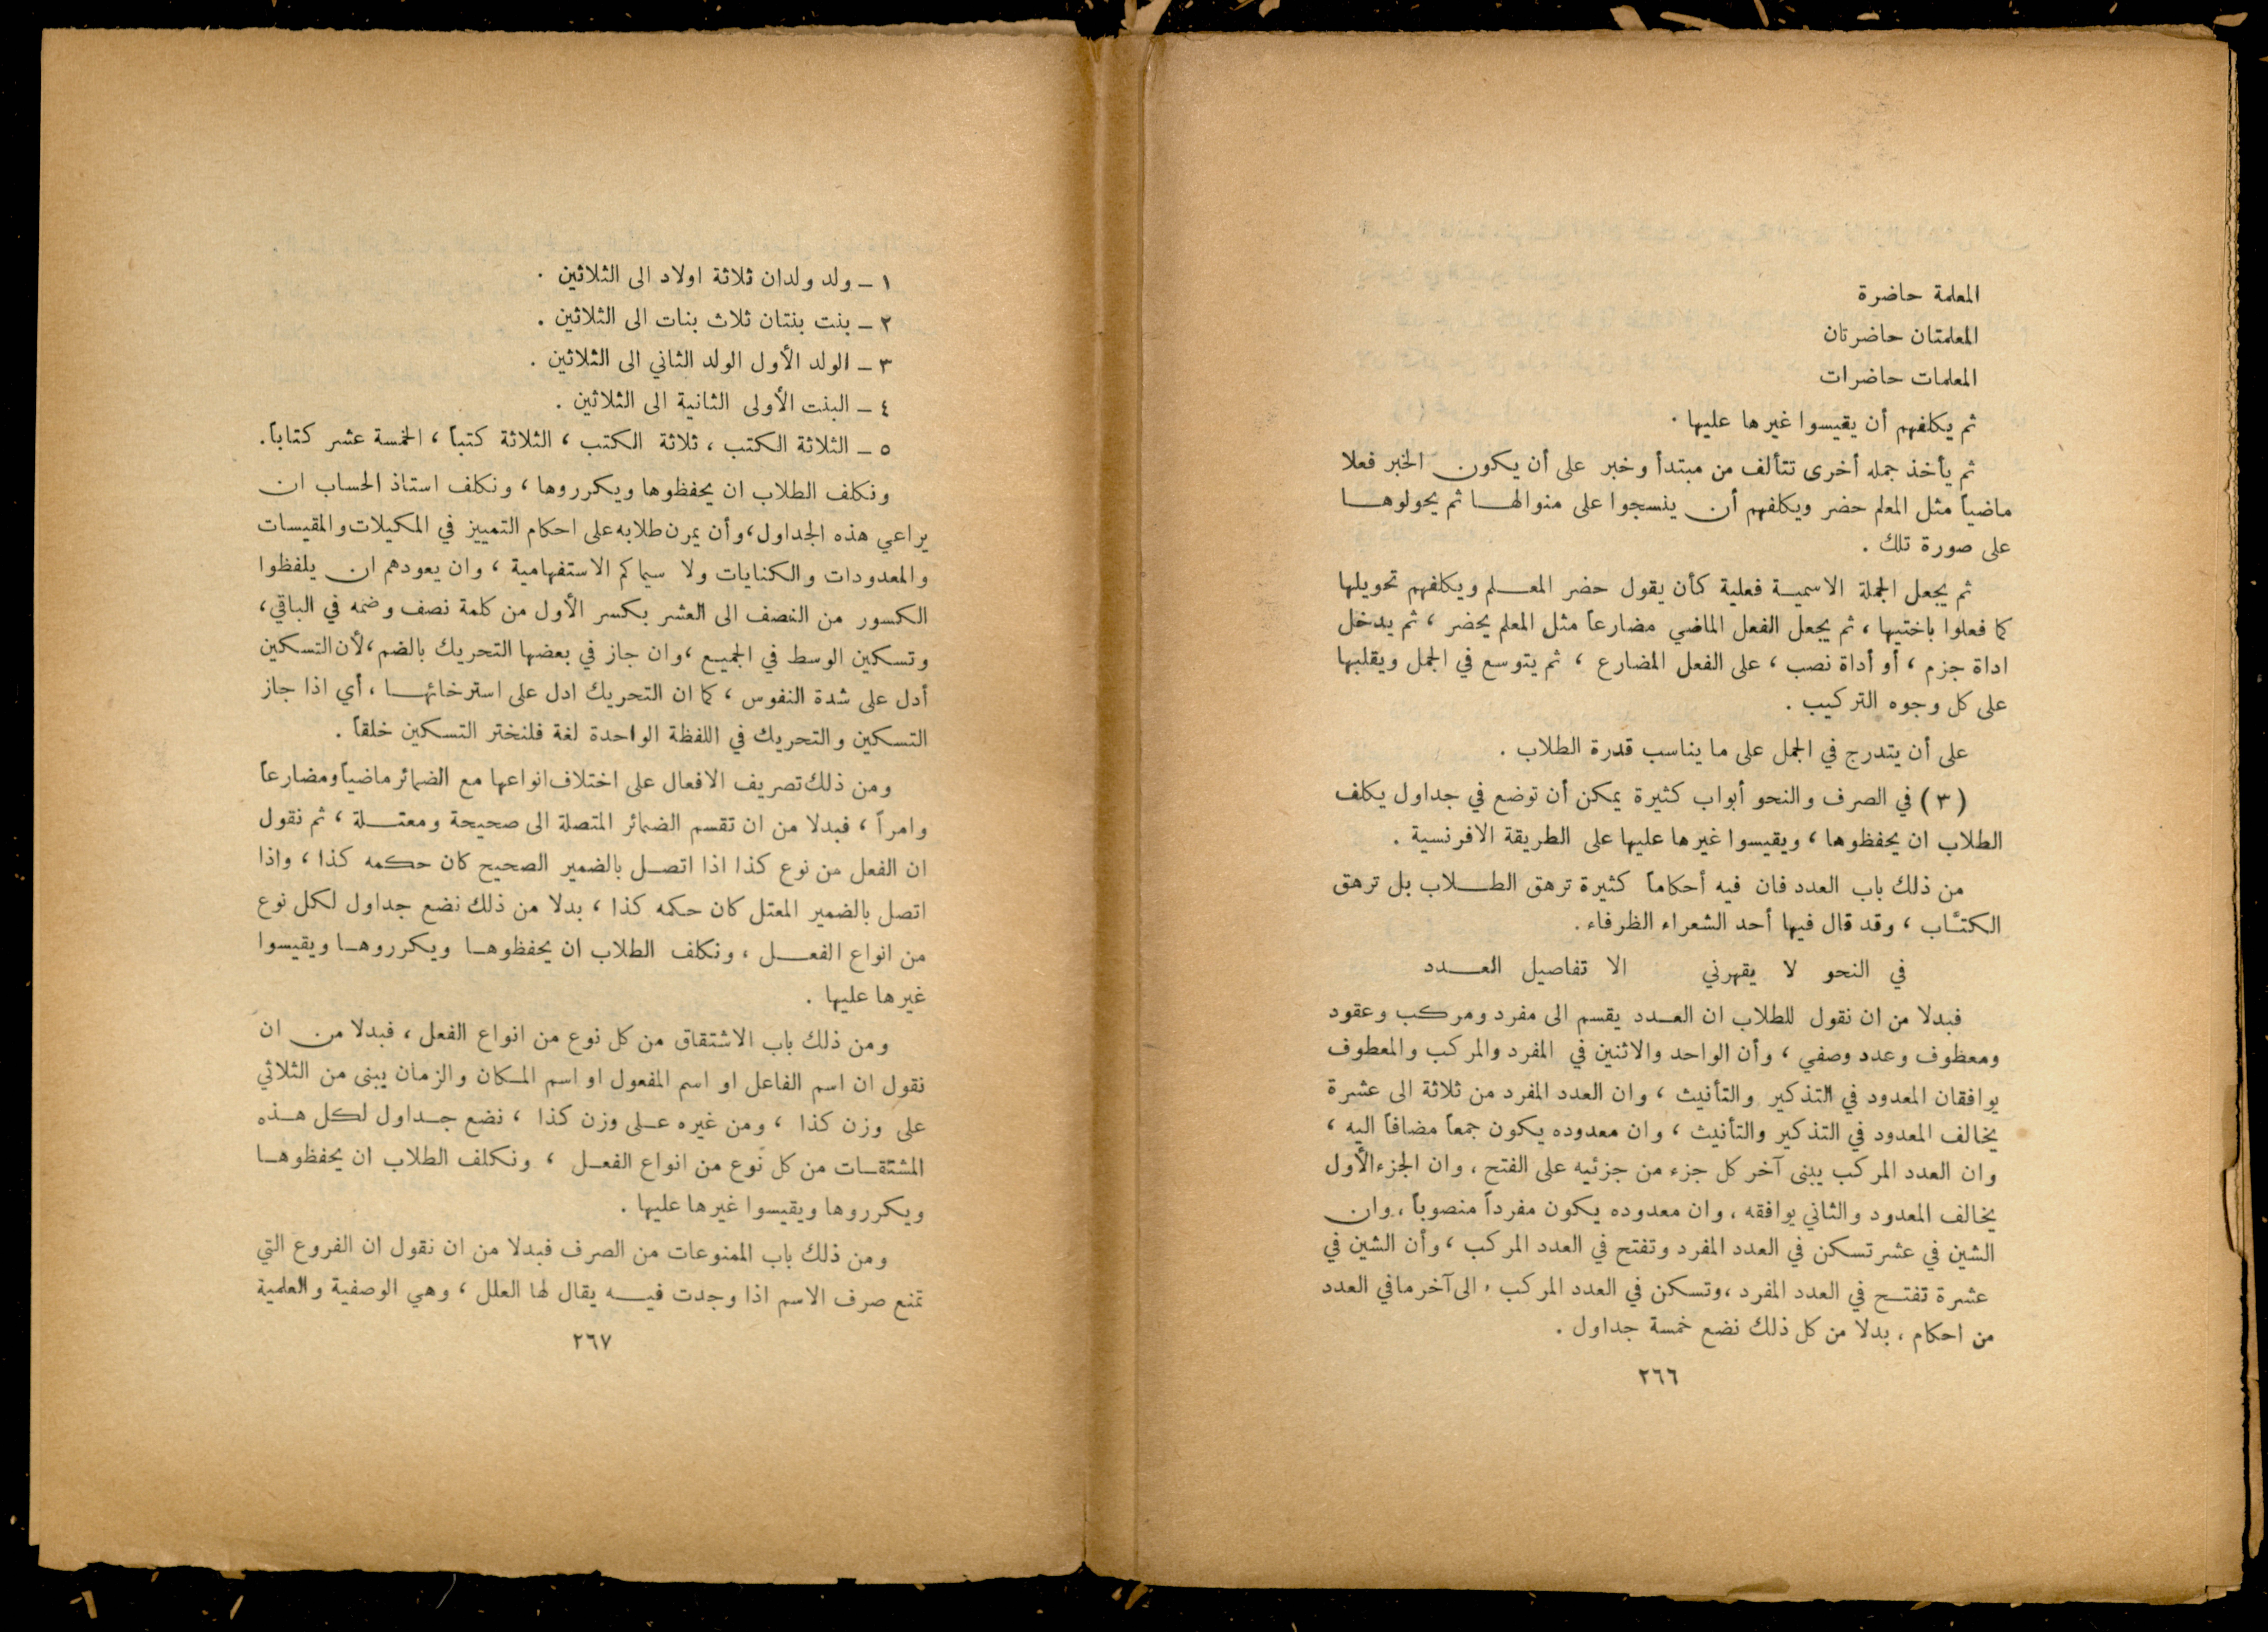 المعلمة حاضرة
المعلمتان حاضرتان
المعلمات حاضرات
ثم يكلفهم أن يقيسوا غيرها عليها ·
ثم يأخذ جمله أخرى تتألف من مبتدأ وخبر على أن يكون الخبر فعلا
ماضياً مثل المعلم حضر ويكلفهم أن ينسجوا على منوالها ثم يحولوها
على صورة تلك .
ثم يجعل الجملة الاسمية فعلية كأن يقول حضر المعلم ويكلفهم تحويلها
كما فعلوا باختيها ، ثم يجعل الفعل الماضي مضارعاً مثل المعلم يحضر ، ثم يدخل
اداة جزم ، أو أداة نصب ، على الفعل المضارع ، ثم يتوسع في الجمل ويقلبها
على كل وجوه التركيب .
على أن يتدرج في الجمل على ما يناسب قدرة الطلاب .
(٣) في الصرف والنحو أبواب كثيرة يمكن أن توضع في جداول يكلف
الطلاب ان يحفظوها ، ويقيسوا غيرها عليها على الطريقة الافرنسية .
من ذلك باب العدد فان فيه أحكاماً كثيرة ترهق الطلاب بل ترهق
الكتـَّاب ، وقد قال فيها أحد الشعراء الظرفاء .
في النحو لا يقهرني الا تفاصيل العدد
فبدلا من ان نقول للطلاب ان العدد يقسم الى مفرد ومركب وعقود
ومعطوف وعدد وصفي ، وأن الواحد والاثنين في المفرد والمركب والمعطوف
يوافقان المعدود في التذكير والتأنيث ، وان العدد المفرد من ثلاثة الى عشرة
يخالف المعدود في التذكير والتأنيث ، وان معدوده يكون جمعاً مضافاً اليه ،
وان العدد المركب يبنى آخر كل جزء من جزئيه على الفتح ، وان الجزء الأول
يخالف المعدود والثاني يوافقه ، وان معدوده يكون مفرداً منصوباً ، وان
الشين في عشر تسكن في العدد المفرد وتفتح في العدد المركب ، وأن الشين في
عشرة تفتح في العدد المفرد ، وتسكن في العدد المركب ، الى آخر ما في العدد
من احكام ، بدلا من كل ذلك نضع خمسة جداول .
٢٦٦
١ ـ ولد ولدان ثلاثة اولاد الى الثلاثين ·
٢ ـ بنت بنتان ثلاث بنات الى الثلاثين .
٣ ـ الولد الأول الولد الثاني الى الثلاثين .
٤ ـ البنت الأولى الثانية الى الثلاثين .
٥ ـ الثلاثة الكتب ، ثلاثة الكتب ، الثلاثة كتباً ، الخمسة عشر كتاباً .
ونكلف الطلاب ان يحفظوها ويكرروها ، ونكلف استاذ الحساب ان
يراعي هذه الجداول ، وأن يمرن طلابه على احكام التمييز في المكيلات والمقيسات
والمعدودات والكنايات ولا سيما كم الاستفهامية ، وان يعودهم ان يلفظوا
الكسور من النصف الى العشر بكسر الأول من كلمة نصف وضمه في الباقي ،
وتسكين الوسط في الجميع ، وان جاز في بعضها التحريك بالضم ، لأن التسكين
أدل على شدة النفوس ، كما ان التحريك ادل على استرخائها ، أي اذا جاز
التسكين والتحريك في اللفظة الواحدة لغة فلنختر التسكين خلقاً .
ومن ذلك تصريف الافعال على اختلاف انواعها مع الضمائر ماضياً ومضارعاً
وامراً ، فبدلا من ان تقسم الضمائر المتصلة الى صحيحة ومعتلة ، ثم نقول
ان الفعل من نوع كذا اذا اتصل بالضمير الصحيح كان حكمه كذا ، واذا
اتصل بالضمير المعتل كان حكمه كذا ، بدلا من ذلك نضع جداول لكل نوع
من انواع الفعل ، ونكلف الطلاب ان يحفظوها ويكرروها ويقيسوا
غيرها عليها .
ومن ذلك باب الاشتقاق من كل نوع من انواع الفعل ، فبدلا من ان
نقول ان اسم الفاعل او اسم المفعول او اسم المكان والزمان يبنى من الثلاثي
على وزن كذا ، ومن غيره على وزن كذا ، نضع جداول لكل هذه
المشتقات من كل نوع من انواع الفعل ، ونكلف الطلاب ان يحفظوها
ويكرروها ويقيسوا غيرها عليها .
ومن ذلك باب الممنوعات من الصرف فبدلا من ان نقول ان الفروع التي
تمنع صرف الاسم اذا وجدت فيه يقال لها العلل ، وهي الوصفية والعلمية
٢٦٧